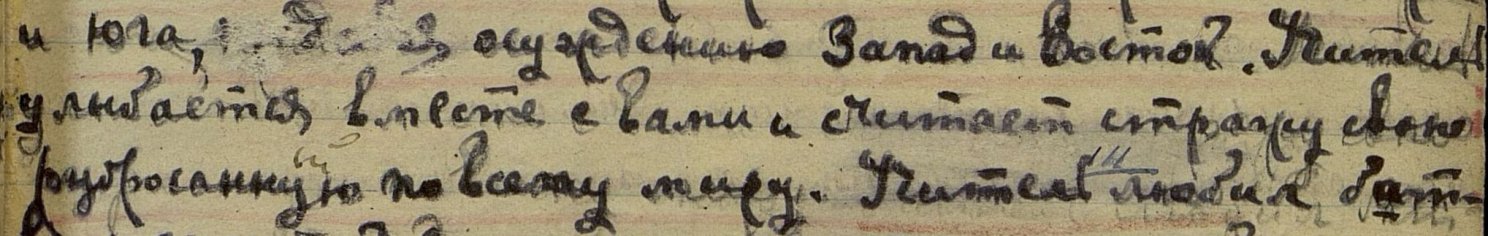 и Юга, осуждению Запад и Восток. Китеж
улыбается вместе с вами и считает стражу свою
разбросанную по всему миру. Китеж любил бит-